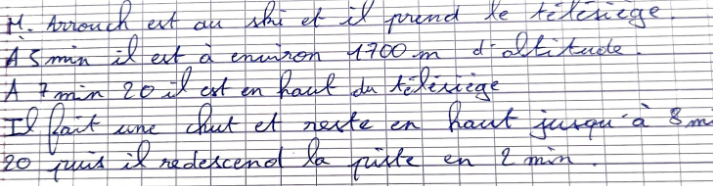 M. Arrouch est au ski et il prend le télésiège.
A 5 min il est à environ 1700 m d'altitude.
A 7 min 20 il est en haut du télésiège
Il fait une chut et reste en haut jusqu'à 8 mi
20 puis il redescend la piste en 2 min.